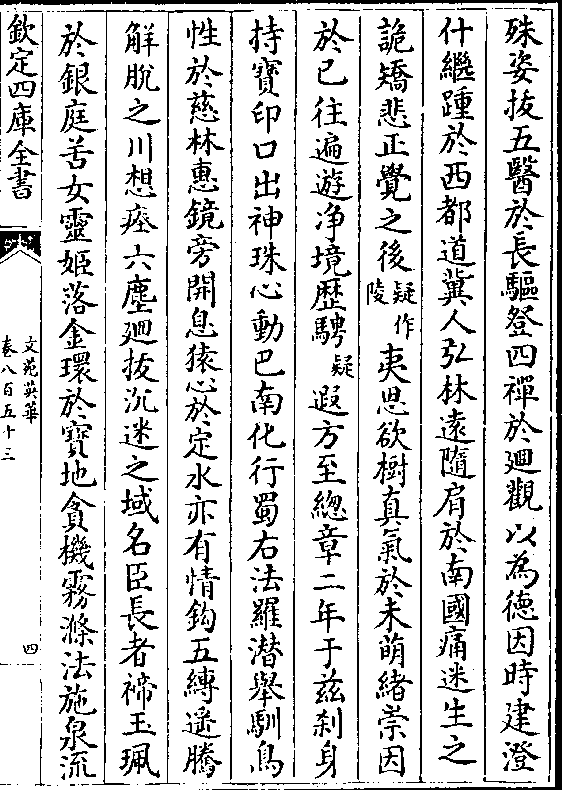 殊姿抜五醫於長驅登四禪於廻觀以為徳因時建澄
什繼踵於西都道冀人弘林遠隨肩於南國痛迷生之
詭矯悲正覺之後疑作陵夷思欲樹真氣於未萌緒崇因
於已往遍遊净境歴騁疑遐方至總章二年于兹刹身
持寶印口出神珠心動巴南化行蜀右法羅潜舉馴鳥
性於慈林惠鏡旁開息猿心於定水亦有情鈎五縳遥騰
解脱之川想痊六塵廻抜沉迷之域名臣長者褫玉珮
於銀庭苦女靈姬落金環於寶地貪機霧滌法施泉流
欽定四庫全書
文苑英華
卷八百五十三
四